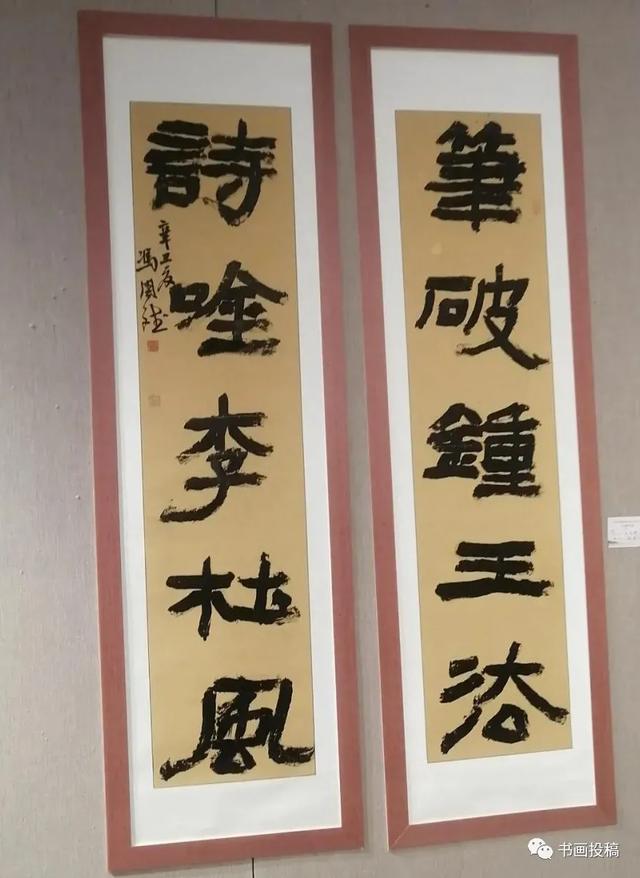 筆破鍾王法
詩唫李杜風
辛丑夏
馮
书画投稿